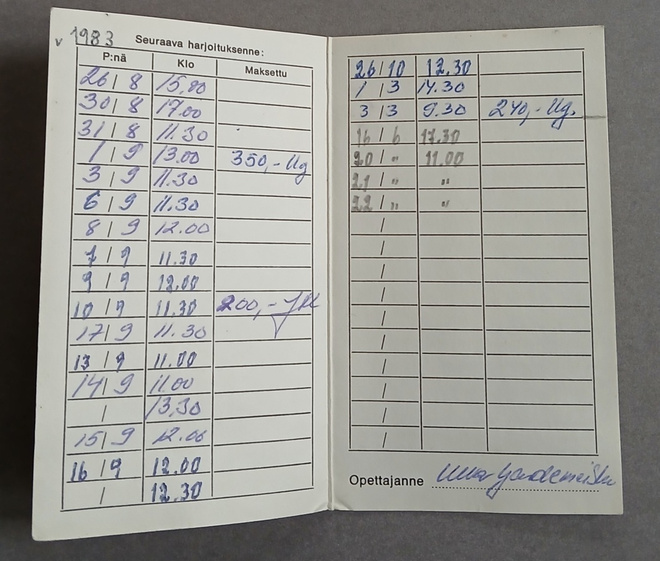 v 1983 Seuraava harjoituksenne:
P:nä Klo Maksettu
26/8 15.00
30/8 17.00
31/8 11.30
1/9 13.00 350,- Ug
3/9 11.30
6/9 11.30
8/9 12.00
7/9 11.30
9/9 12.00
10/9 11.30 200,-
17/9 11.30
13/9 11.00
14/9 11.00
/ 13.30
15/9 12.00
16/9 12.00
/ 12.30
26/10 12.30
1/3 14.30
3/3 9.30 240,- Ug.
16/6 17.30
20/" 11.00
21/" "
22/" "
/
/
/
/
/
/
/
/
/
/
Opettajanne